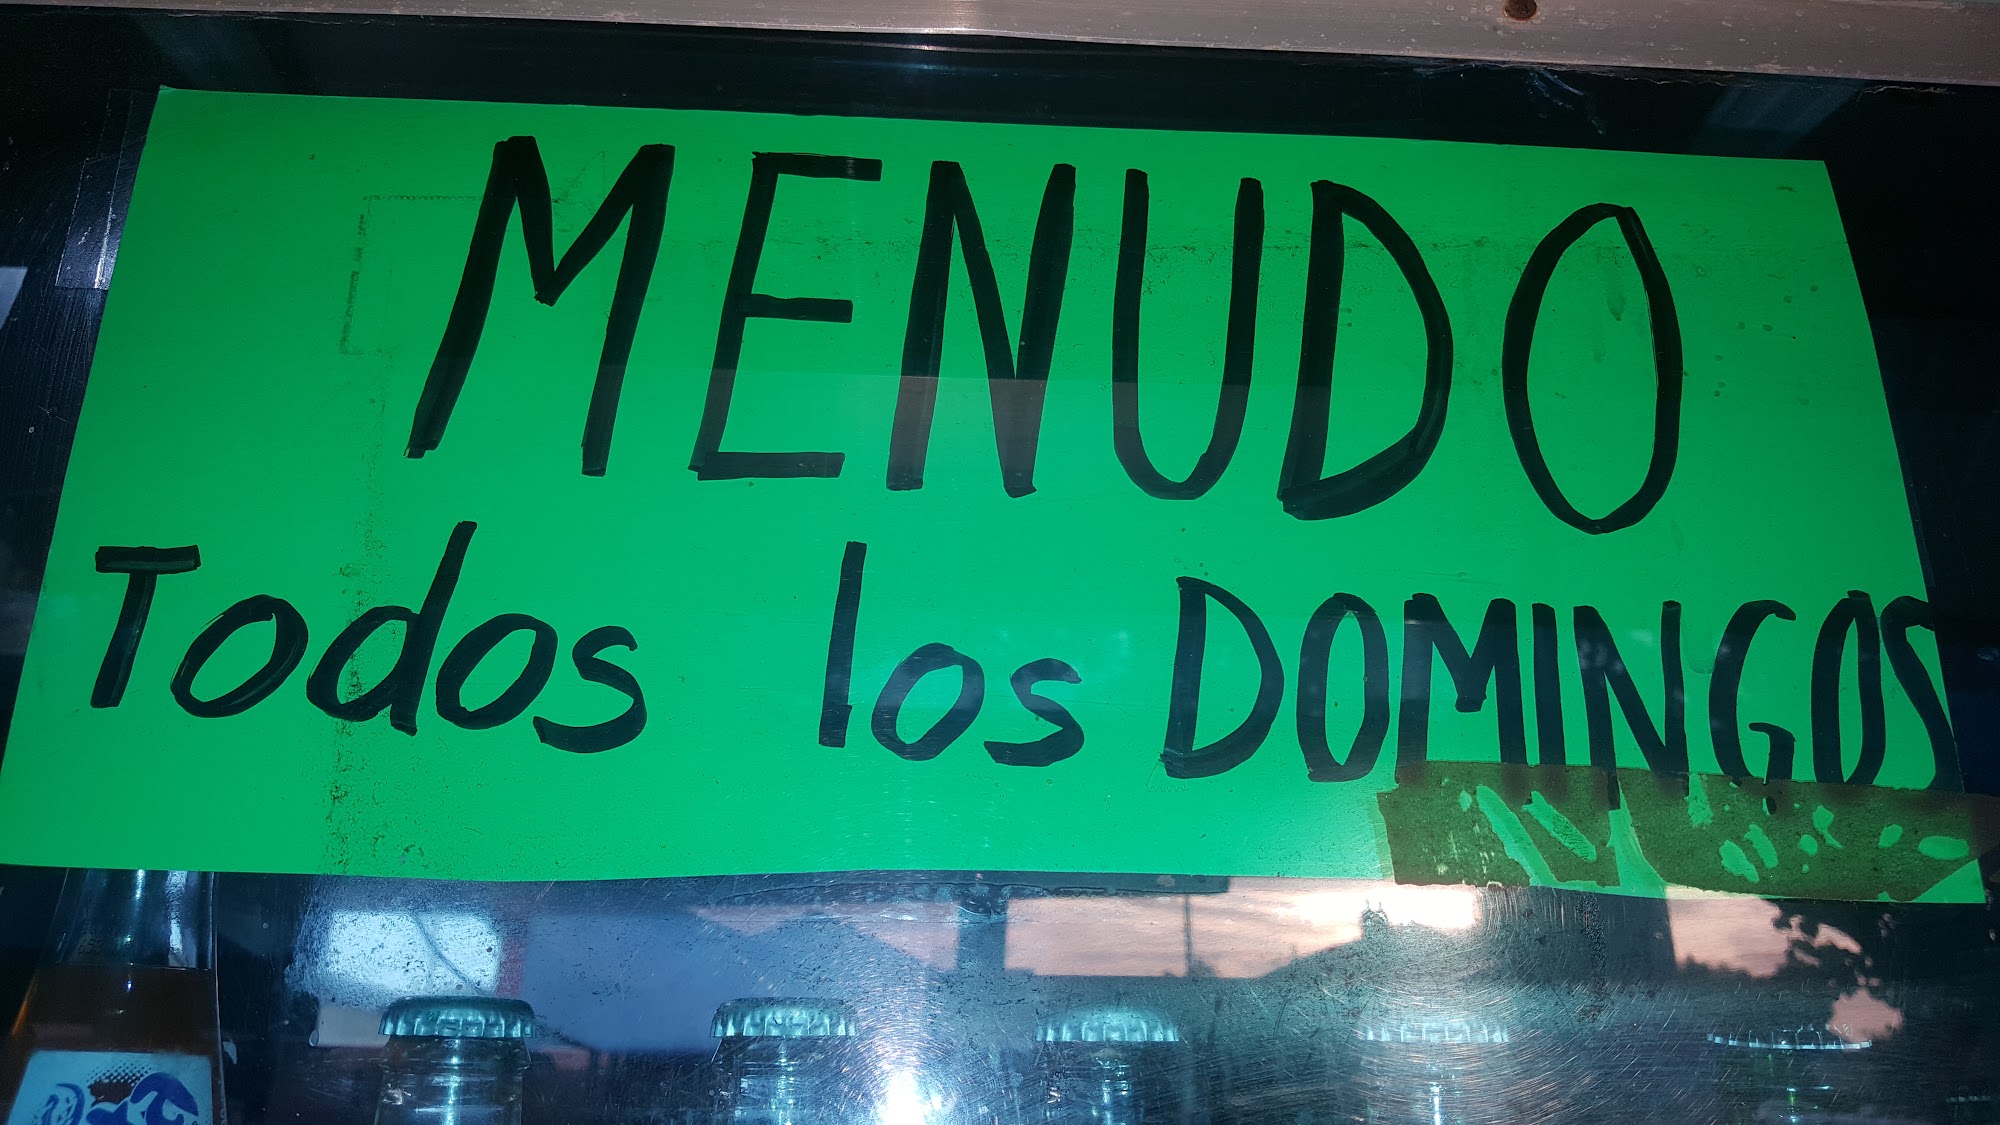 MENUDO
Todos los DOMINGOS